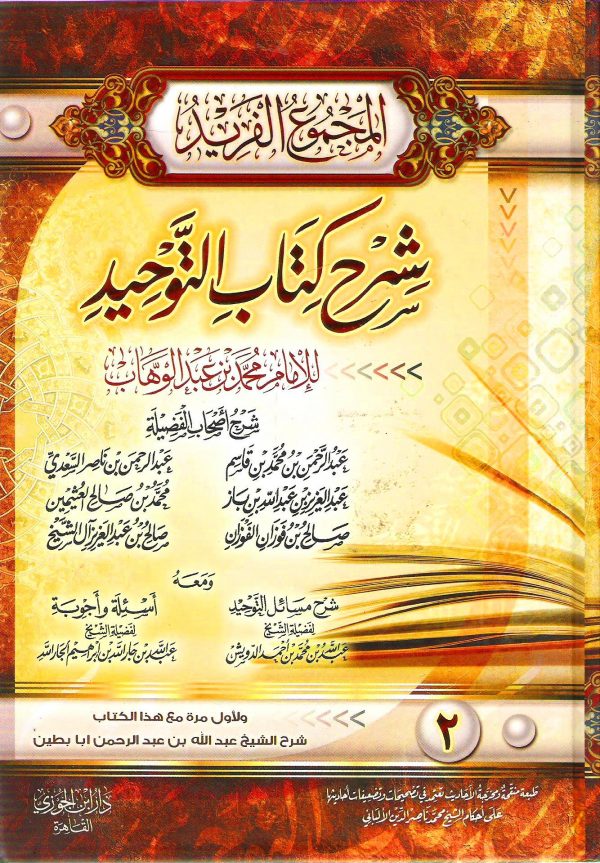 المجموع الفريد
شرح كتاب التوحيد
للإمام محمد بن عبد الوهاب
شرح أصحاب الفضيلة
عبد الرحمن بن محمد بن قاسم عبد الرحمن بن ناصر السعدي
عبد العزيز بن عبد الله بن باز محمد بن صالح العثيمين
صالح بن فوزان الفوزان صالح بن عبد العزيز آل الشيخ
ومعه
شرح مسائل التوحيد أسئلة وأجوبة
لفضيلة الشيخ لفضيلة الشيخ
عبد الله بن محمد بن أحمد الدويش عبد الله بن جار الله بن إبراهيم الجار الله
ولأول مرة مع هذا الكتاب
شرح الشيخ عبد الله بن عبد الرحمن ابا بطين
٢
طبعة منقحة ومخرجة الأحاديث تعتمد في تصحيحات وتضعيفات أحاديثها
على أحكام الشيخ محمد ناصر الدين الألباني
دار ابن الجوزي
القاهرة